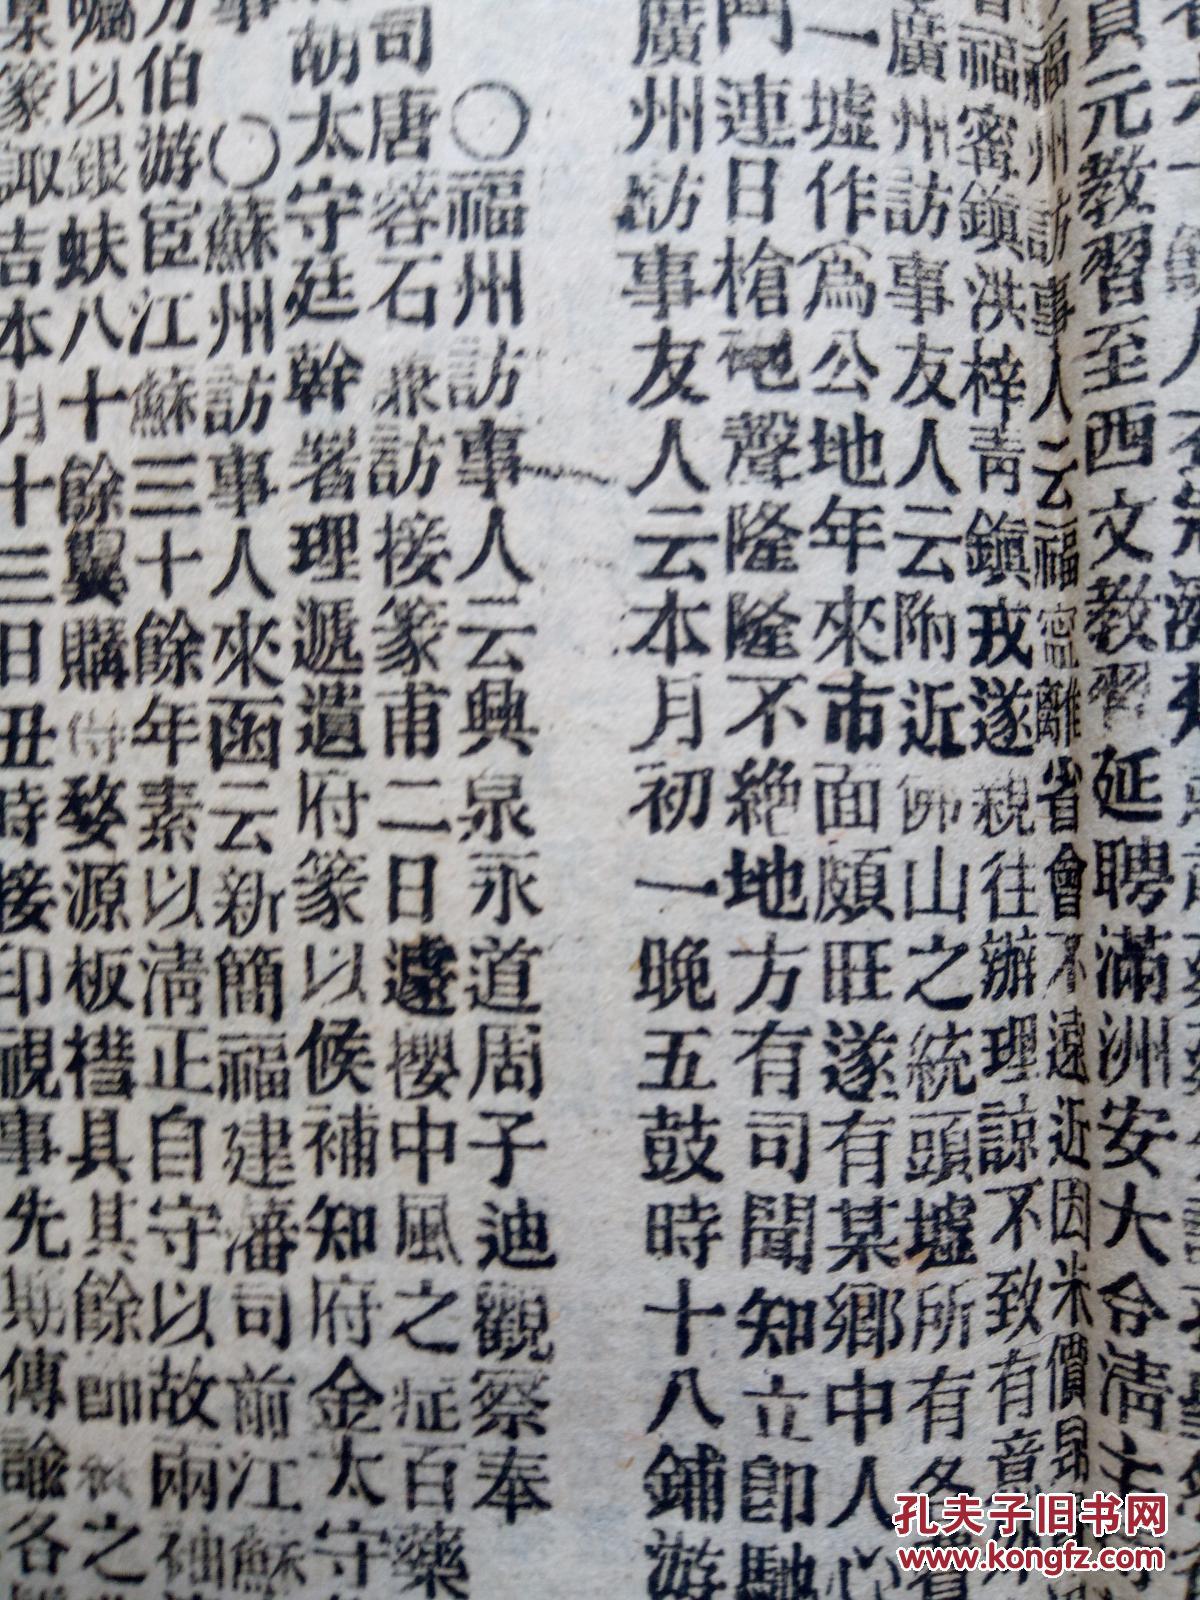 員元教習至西文教習延聘滿洲安大令淸
福州訪事人云福寗離省會不遠近因米價昂
福寗鎭洪梓靑鎭戎遂親往辦理諒不致有意外
廣州訪事友人云附近佛山之統頭墟所有各
一墟作爲公地年來市面頗旺遂有某鄉中人心
鬥連日槍砲聲隆隆不絶地方有司聞知立卽馳
廣州訪事友人云本月初一晚五鼓時十八鋪游
〇福州訪事人云興泉永道周子迪觀察奉
司唐蓉石 訪接篆甫二日遽攖中風之症百藥
胡太守廷幹署理遞遺府篆以候補知府金太守
〇蘇州訪事人來函云新簡福建藩司前江蘇
方伯游宦江蘇三十餘年素以淸正自守以故兩
囑以銀蚨八十餘翼購 婺源板槥具其餘 之
篆諏吉本月十三日丑時接印視事先期傳諭各
孔夫子旧书网
www.kongfz.com